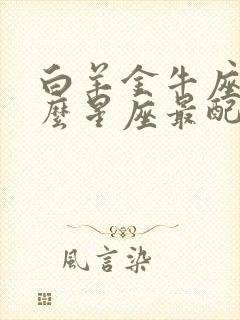 白羊金牛座
麼星座最配
風言染